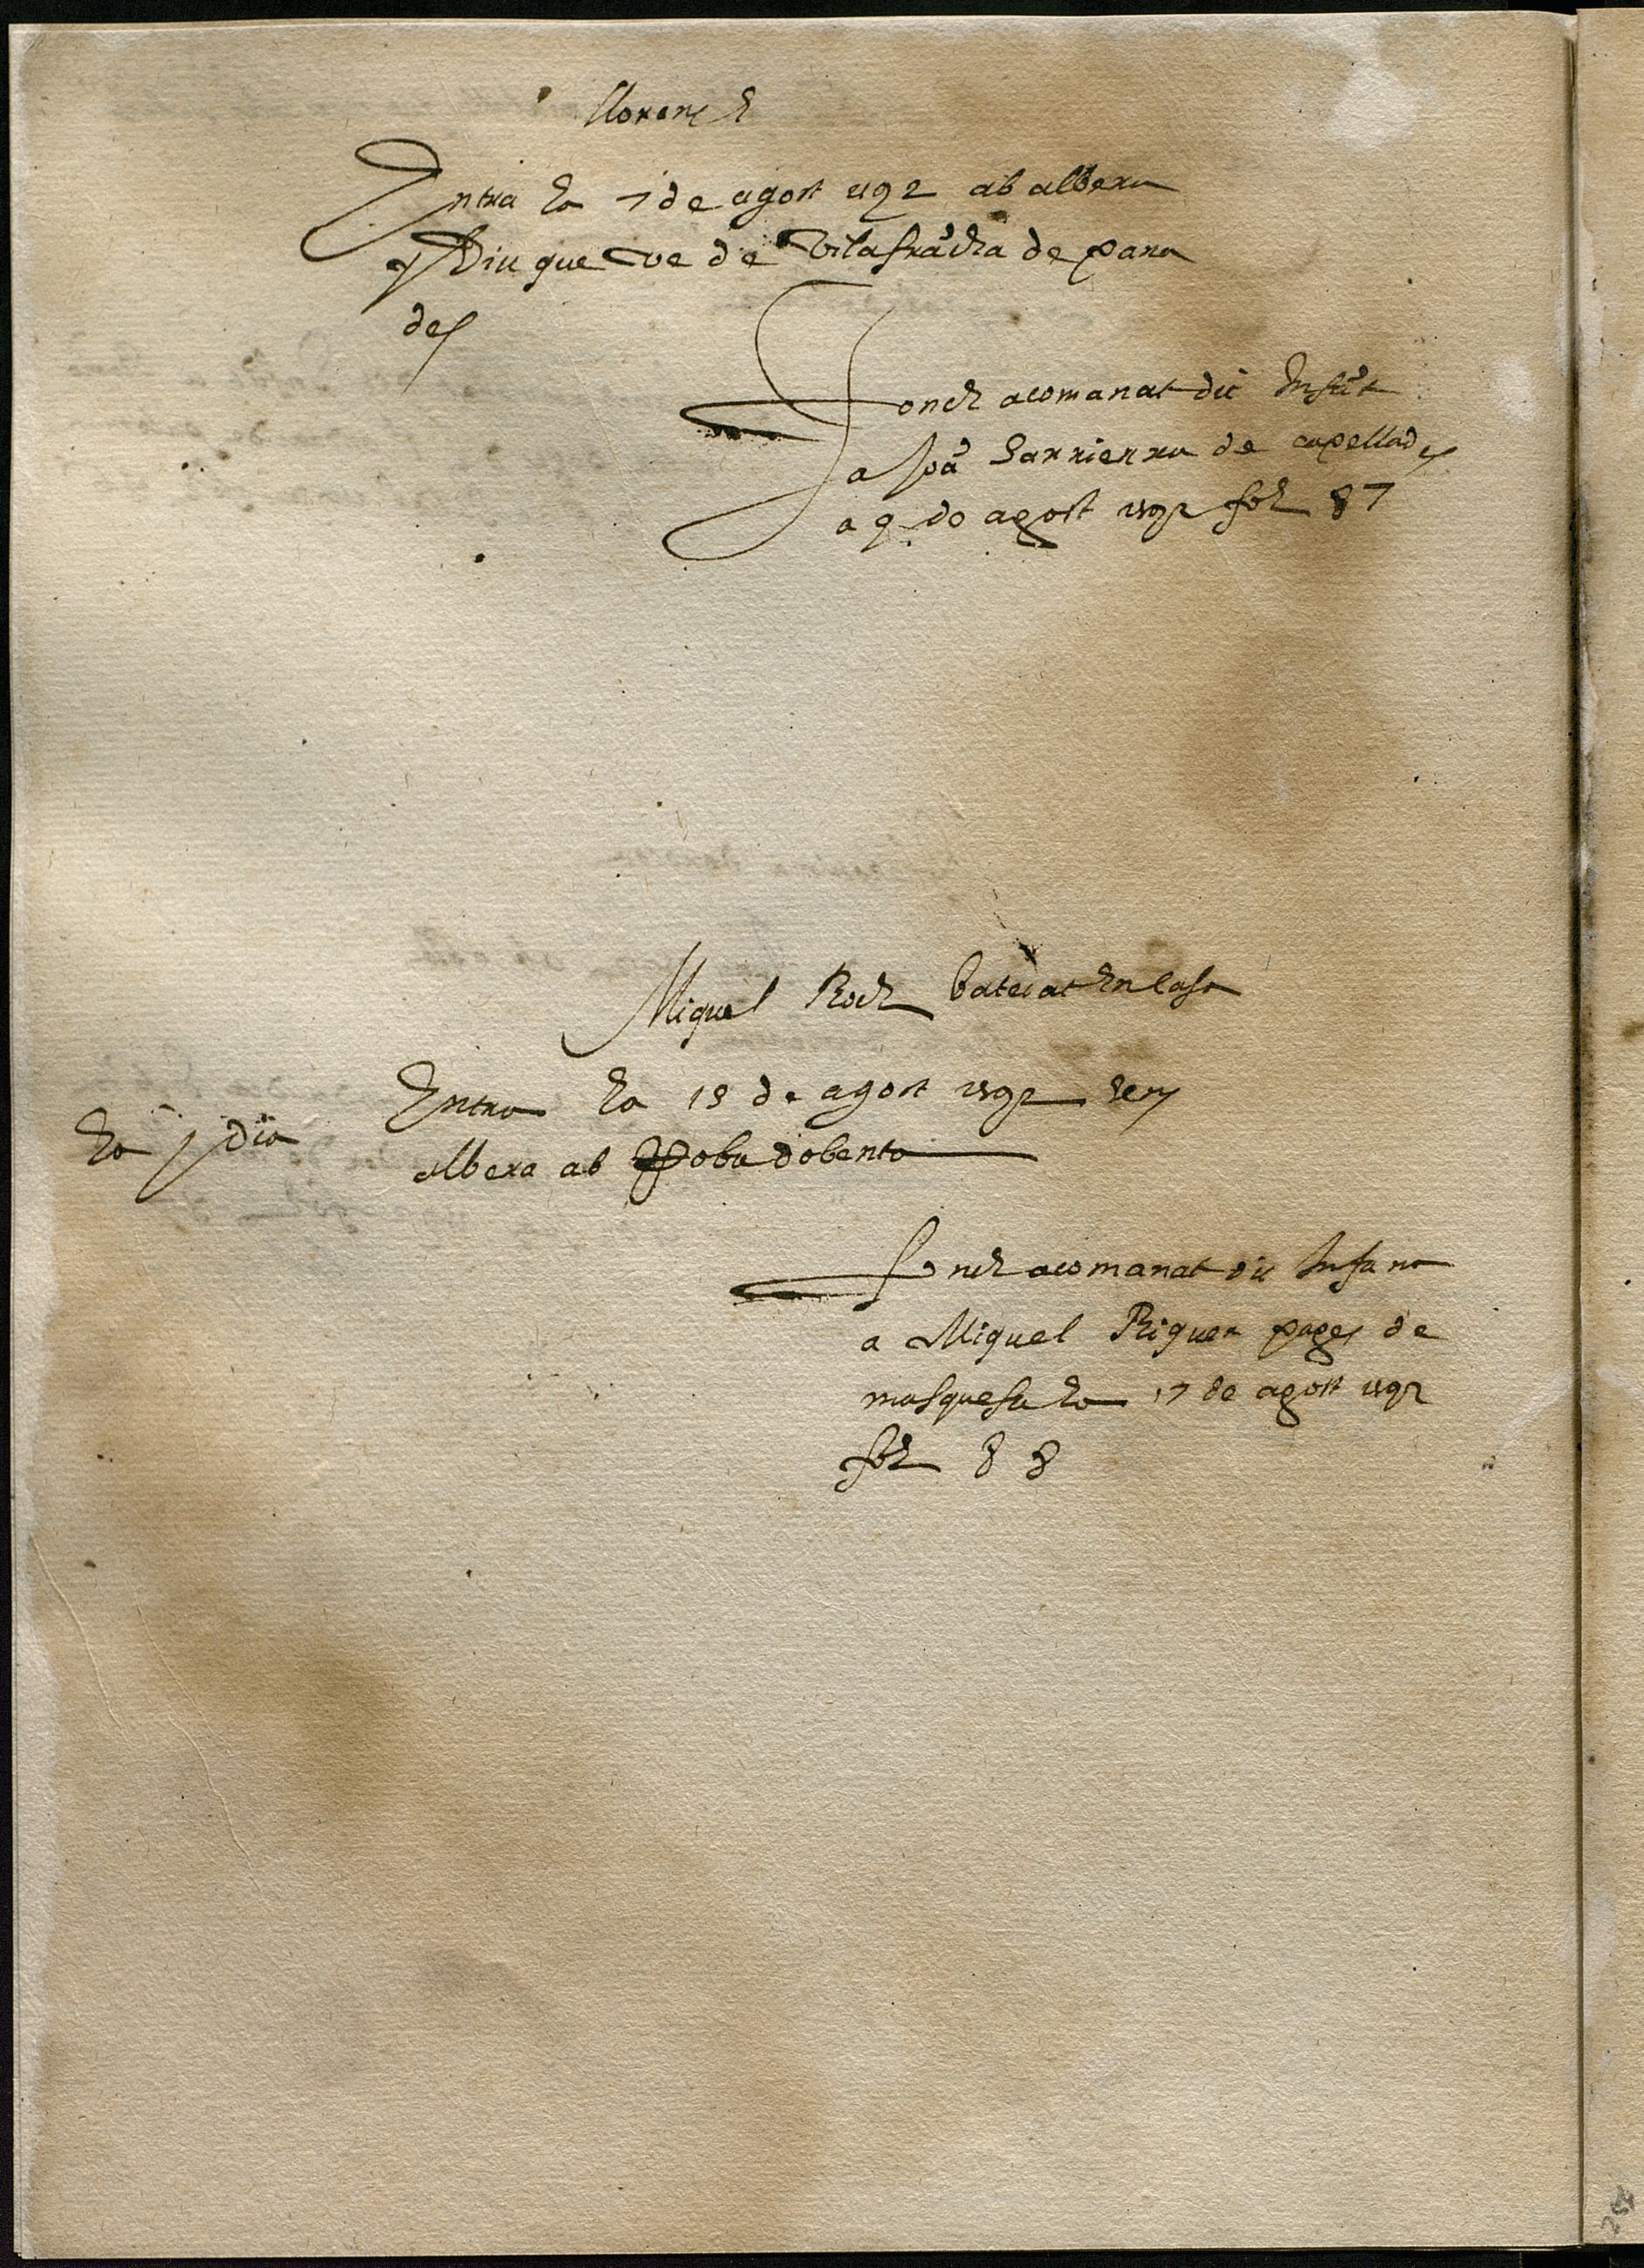 llorens
Entra ha 7 de agost 1592 ab albera
y diu que ve de vilafrācha de pana
des
Fonch acomanat dit Infāt
a Joā Sarrierra de capellades
a 9 de agost 1592 fol 87
Miquel Roch bateiat en casa
Entra ha 15 de agost 1592 sens
albera ab roba dolenta
ha j dia
fonch acomanat dit Infant
a Miquel Riquer pages de
masquefa ha 17 de agost 1592
fol 88